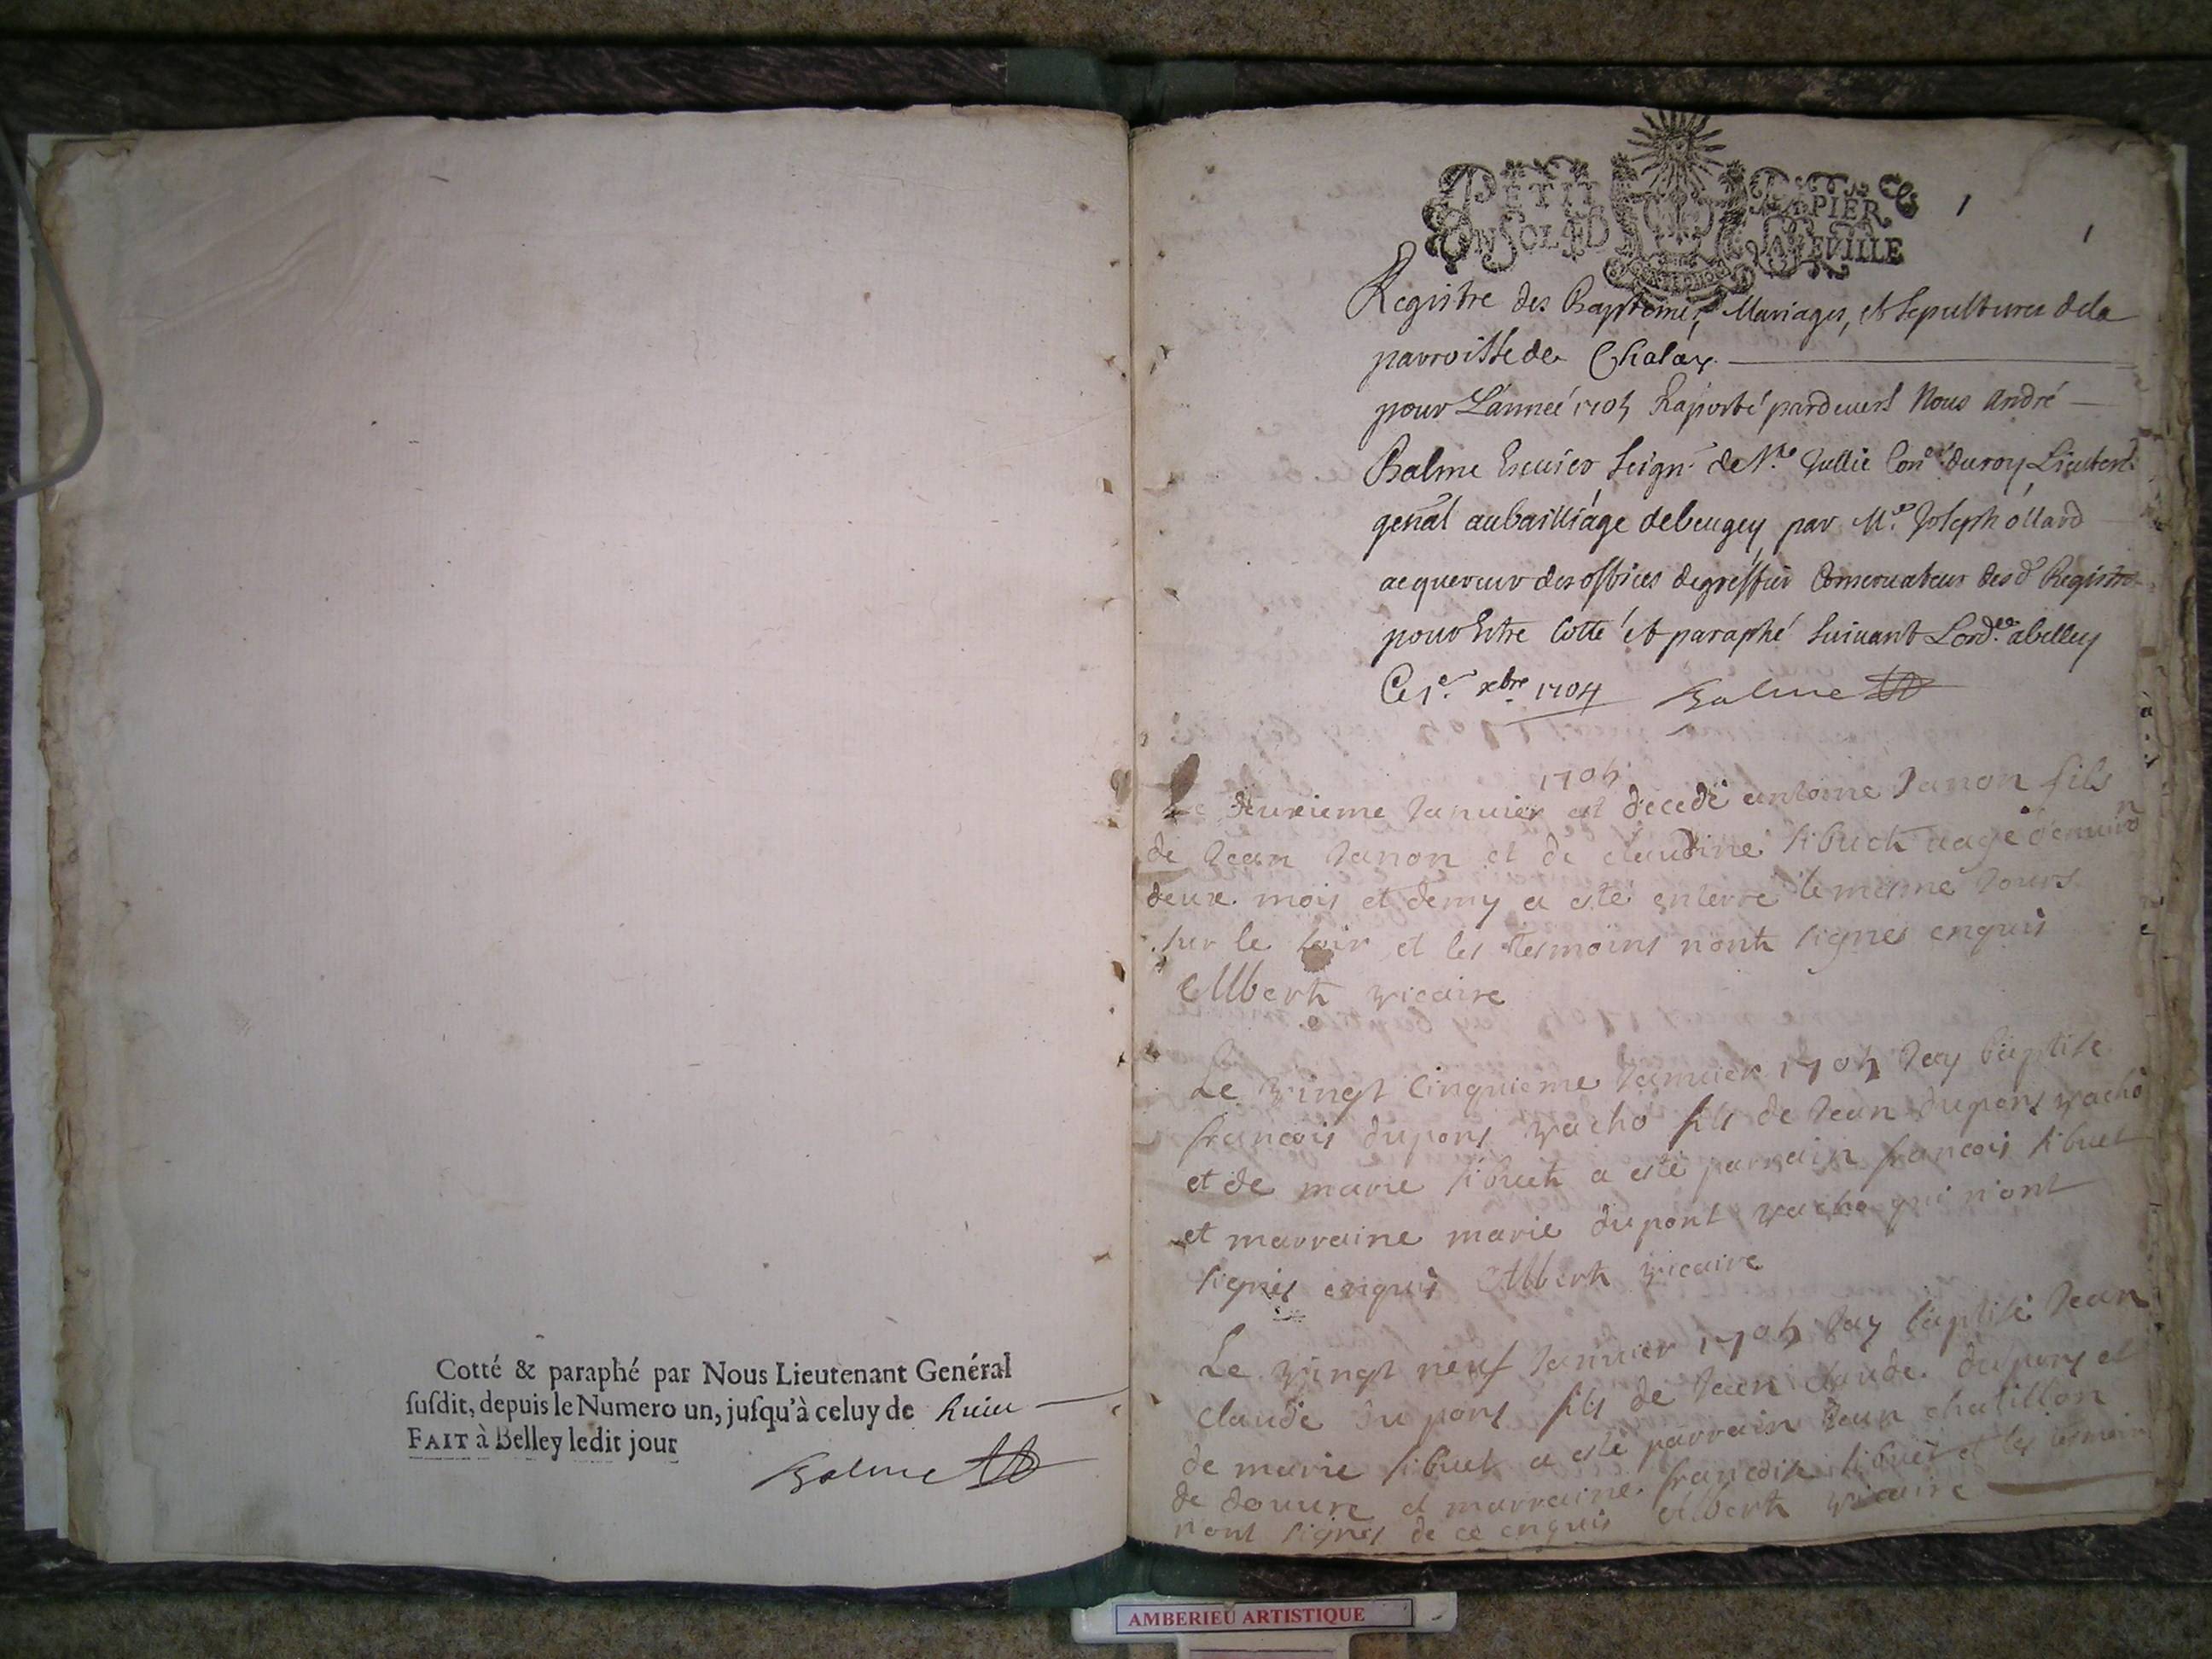 Cotté & paraphé par Nous Lieutenant Genéral
susdit, depuis le Numero un, jusqu'à celuy de huiu
FAIT à Belley ledit jour
Balme
PETIT PAPIER
UN SOL LE D
LEVILLE
1
1
Registre des Baptemes, Mariages, et Sepultures dela
parroisse de Chaley
pour L'année 1705 Raporté pardeuers Nous André
Balme Escuier Seigr de Ste Jullie Coner du roy Lieutent
genal au bailliage debeugey, par Mre Joseph ollard
acquereur des offices degreffier Conservateur desd Registres
pour Estre Cotté et paraphé suiuant Lordce abelley
Ce 1er xbre 1704 Balme
1705
Le deuxieme Januier est decedé antoine Janon fils
de Jean Janon et de claudine sibuet aage denuiron
deux mois et demy a esté enterré le mesme Jours
sur le soir et les tesmoins n'ont signes enquis
Albert vicaire
Le vingt Cinquieme Januier 1705 Jay baptise
francois dupons vacho fils de Jean dupons vacho
et de marie sibuet a esté parrain francois sibuet
et marraine marie dupont vacho qui n'ont
signes enquis Albert vicaire
Le vingt neuf Januier 1705 Jay baptisé Jean
claude dupons fils de Jean claude dupons et
de marie sibuet a esté parrain Jean chatillon
de douure et marraine francoise sibuet et les tesmoins
n'ont signes de ce enquis Albert vicaire
AMBERIEU ARTISTIQUE